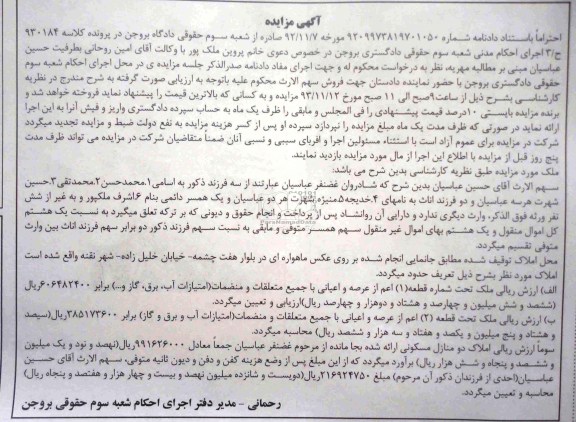 آگهی مزایده
احتراماً باستناد دادنامه شماره ۹۲۰۹۹۷۳۸۱۹۷۰۱۰۵۰ مورخه ۹۲/۱۱/۷ صادره از شعبه سوم حقوقی دادگاه بروجن در پرونده کلاسه ۹۳۰۱۸۴
ج/۳ اجرای احکام مدنی شعبه سوم حقوقی دادگستری بروجن در خصوص دعوی خانم پروین ملک پور با وکالت آقای امین روحانی بطرفیت حسین
عباسیان مبنی بر مطالبه مهریه، نظر به درخواست محکوم له و جهت اجرای مفاد دادنامه صدرالذکر جلسه مزایده ی در محل اجرای احکام شعبه سوم
حقوقی دادگستری بروجن با حضور نماینده دادستان جهت فروش سهم الارث محکوم علیه باتوجه به ارزیابی صورت گرفته به شرح مندرج در نظریه
کارشناسی بشرح ذیل از ساعت ۹صبح الی ۱۱ صبح مورخ ۹۳/۱۱/۱۲ مزایده و به کسانی که بالاترین قیمت را پیشنهاد نماید فروخته خواهد شد و
برنده مزایده بایستی ۱۰درصد قیمت پیشنهادی را فی المجلس و مابقی را ظرف یک ماه به حساب سپرده دادگستری واریز و فیش آنرا به این اجرا
ارائه نماید در صورتی که ظرف مدت یک ماه مبلغ مزایده را نپردازد سپرده او پس از کسر هزینه مزایده به نفع دولت ضبط و مزایده تجدید میگردد
شرکت در مزایده برای عموم آزاد است با استثناء مسئولین اجرا و اقربای سببی و نسبی آنان ضمناً متقاضیان شرکت در مزایده می تواند ظرف مدت
پنج روز قبل از مزایده با اطلاع این اجرا از مال مورد مزایده بازدید نمایند.
ملک مورد مزایده طبق نظریه کارشناسی بدین شرح می باشد:
سهم الارث آقای حسین عباسیان بدین شرح که شادروان غضنفر عباسیان عبارتند از سه فرزند ذکور به اسامی۱.محمدحسن۲.محمدتقی۳.حسین
شهرت هرسه عباسیان و دو فرزند اناث به نامهای ۴.خدیجه۵.منیژه شهرت هر دو عباسیان و یک همسر دائمی بنام ۶.اشرف ملکپور و به غیر از شش
نفر ورثه فوق الذکر، وارث دیگری ندارد و دارایی آن روانشاد پس از پرداخت و انجام حقوق و دیونی که بر ترکه تعلق میگیرد به نسبت یک هشتم
کل اموال منقول و یک هشتم بهای اموال غیر منقول سهم همسر متوفی و مابقی به نسبت سهم فرزند ذکور دو برابر سهم فرزند اناث بین وراث
متوفی تقسیم میگردد.
محل املاک توقیف شده مطابق جانمایی انجام شده بر روی عکس ماهواره ای در بلوار هفت چشمه- خیابان خلیل زاده- شهر نقنه واقع شده است
املاک مورد نظر بشرح ذیل تعریف حدود میگردد.
الف) ارزش ریالی ملک تحت شماره قطعه(۱) اعم از عرصه و اعیانی با جمیع متعلقات و منضمات(امتیازات آب، برق، گاز و...) برابر ۶۰۶۴۸۲۴۰۰ریال
(ششصد و شش میلیون و چهارصد و هشتاد و دوهزار و چهارصد ریال)ارزیابی و تعیین میگردد.
ب) ارزش ریالی ملک تحت قطعه (۲) اعم از عرصه و اعیانی با جمیع متعلقات و منضمات(امتیازات آب و برق و گاز) برابر ۳۸۵۱۷۳۶۰۰ریال(سیصد
و هشتاد و پنج میلیون و یکصد و هفتاد و سه هزار و ششصد ریال) محاسبه میگردد.
سوماً ارزش ریالی املاک دو منازل مسکونی ارائه شده بجا مانده از مرحوم غضنفر عباسیان جمعاً معادل ۹۹۱۶۲۶۰۰۰ریال(نهصد و نود و یک میلیون
و ششصد و پنجاه و شش هزار ریال) برآورد میگردد که از این مبلغ پس از وضع هزینه کفن و دفن و دیون ثانیه متوفی، سهم الارث آقای حسین
عباسیان(احدی از فرزندان ذکور آن مرحوم) مبلغ ۲۱۶۹۲۴۷۵۰ریال(دویست و شانزده میلیون نهصد و بیست و چهار هزار و هفتصد و پنجاه ریال)
محاسبه و تعیین میگردد.
رحمانی – مدیر دفتر اجرای احکام شعبه سوم حقوقی بروجن